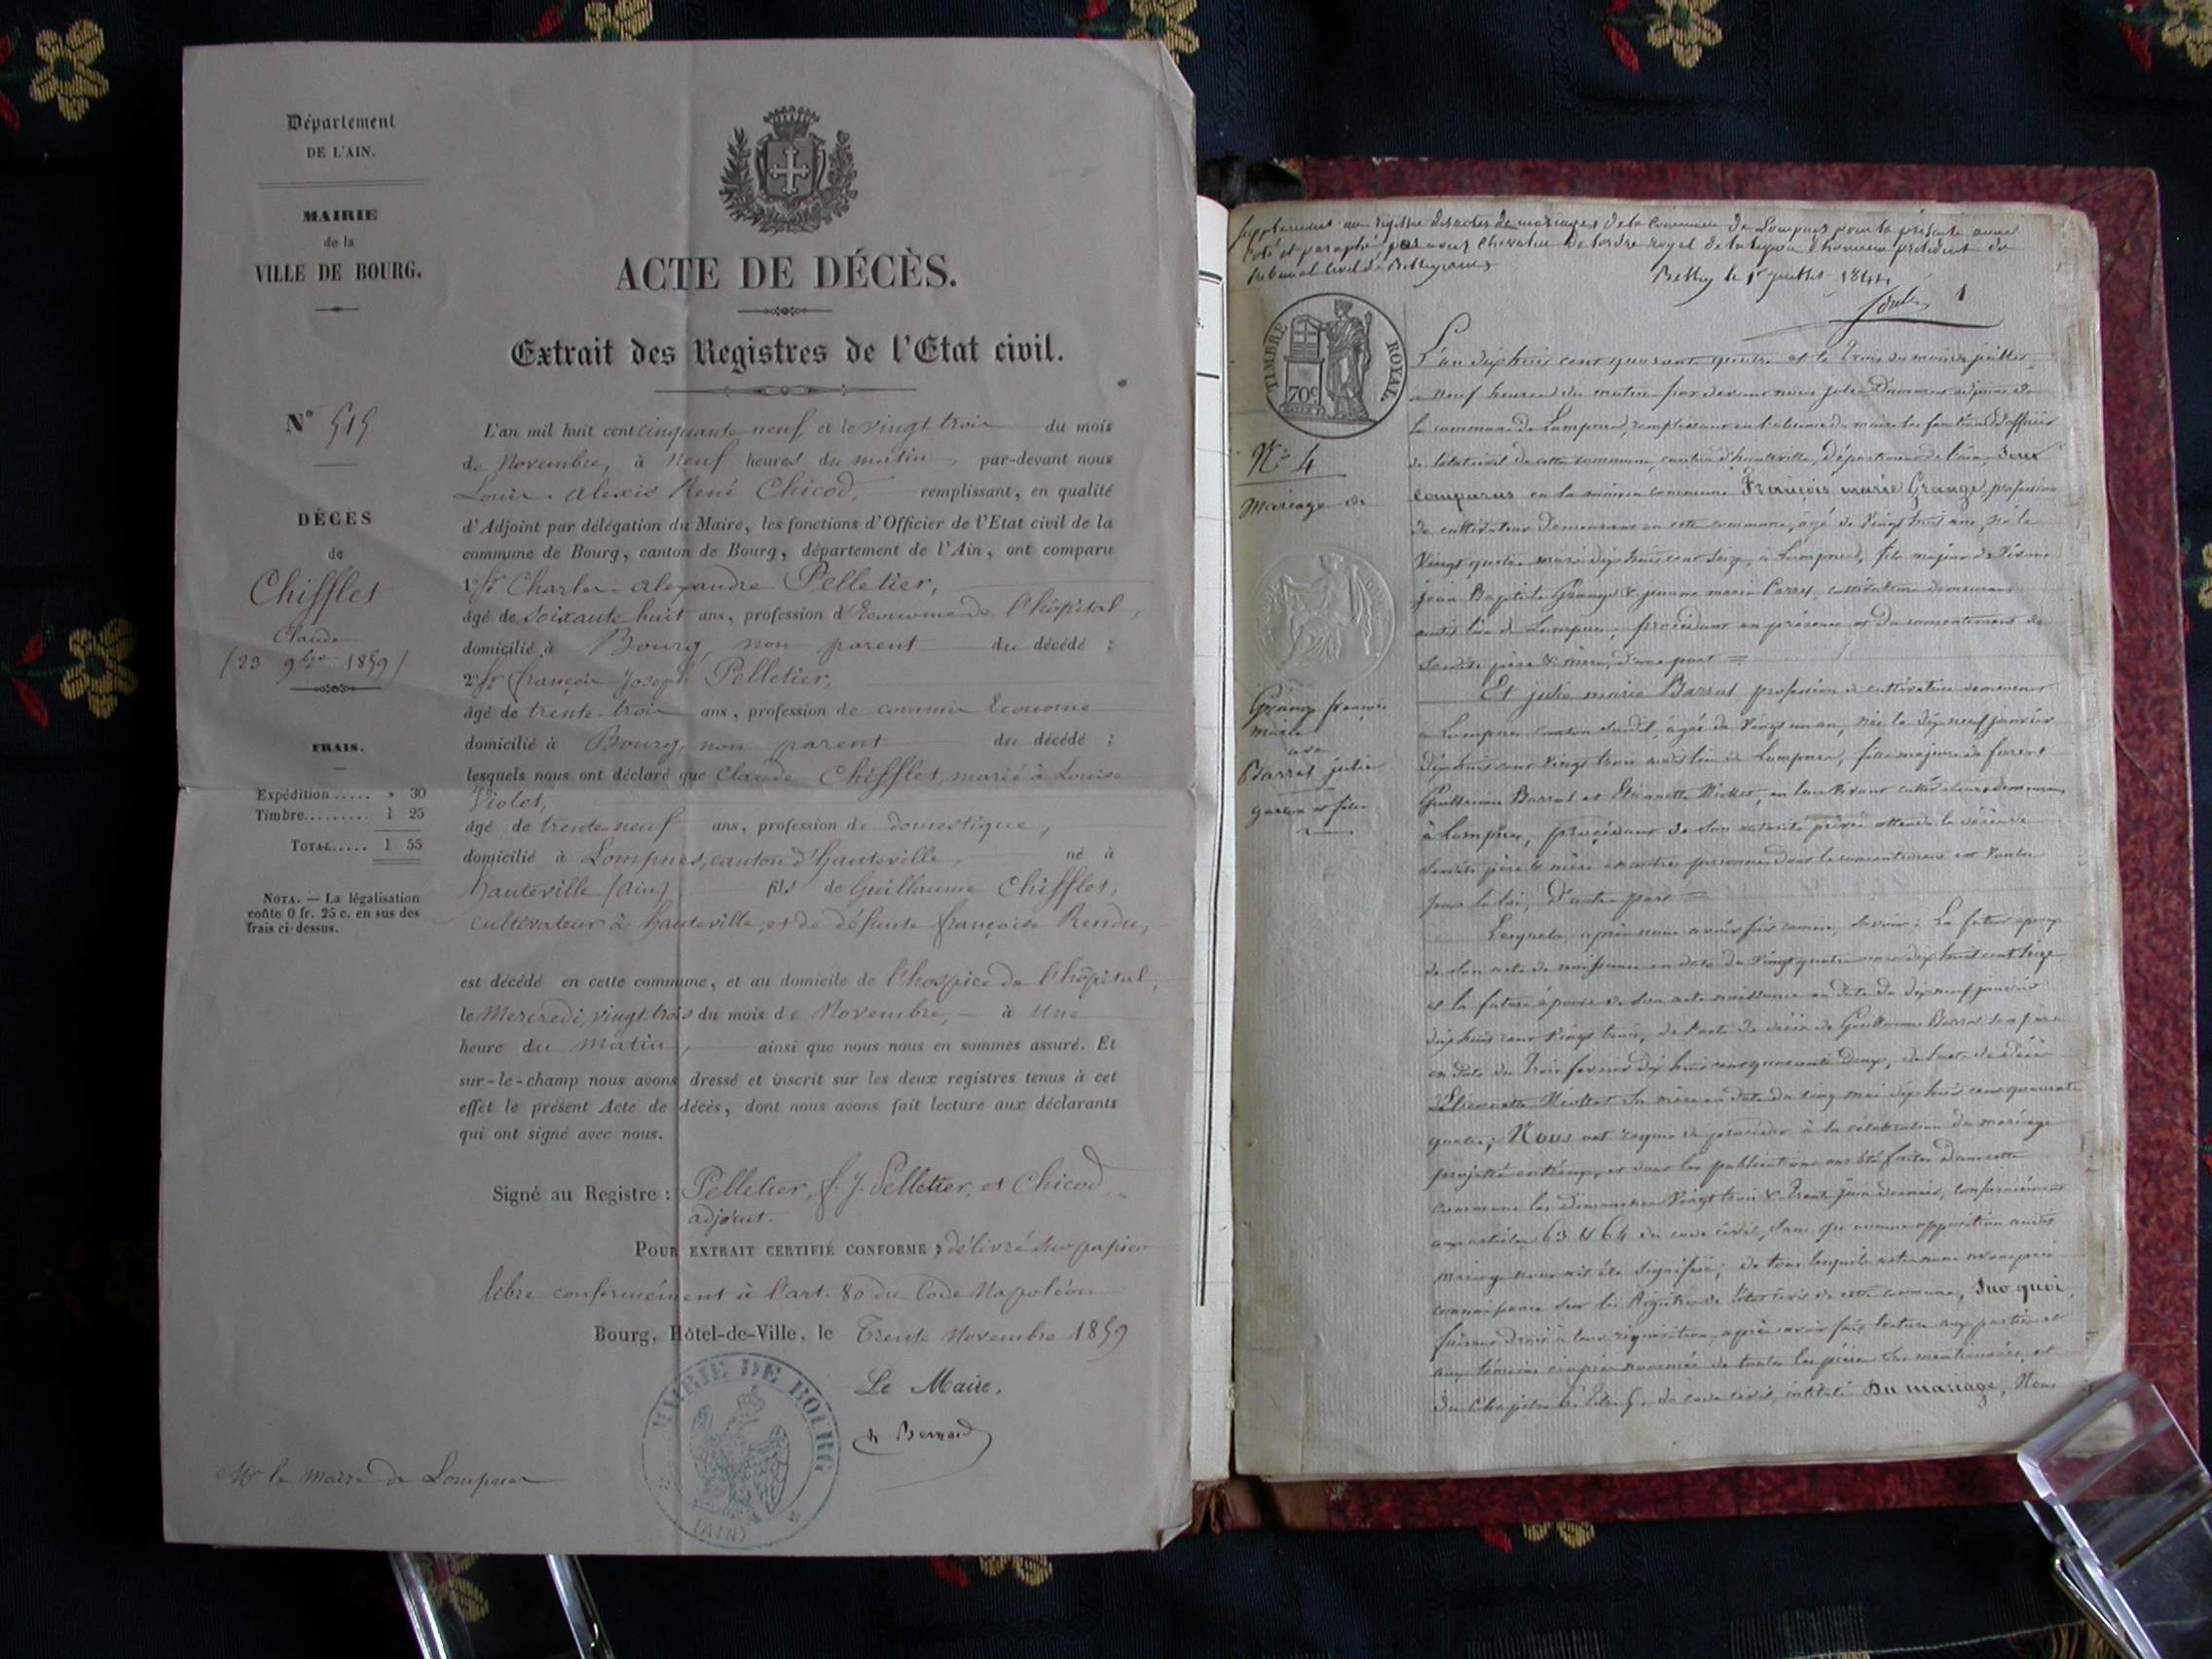 Département
DE L'AIN.
MAIRIE
de la
VILLE DE BOURG.
N° 515
DÉCÈS
de
Chifflet
Claude
(23 9bre 1859)
FRAIS.
Expédition ..... » 30
Timbre ......... 1 25
TOTAL ..... 1 55
NOTA. — La légalisation
coûte 0 fr. 25 c. en sus des
frais ci-dessus.
ACTE DE DÉCÈS.
Extrait des Registres de l'Etat civil.
L'an mil huit cent cinquante neuf, et le vingt trois du mois
de Novembre, à Neuf heures du matin, par-devant nous
Louis Alexis René Chicod, remplissant, en qualité
d'Adjoint par délégation du Maire, les fonctions d'Officier de l'Etat civil de la
commune de Bourg, canton de Bourg, département de l'Ain, ont comparu
1° Sr Charles Alexandre Pelletier,
âgé de soixante huit ans, profession d'Econome de l'hôpital,
domicilié à Bourg, non parent du décédé ;
2° Sr françois Joseph Pelletier,
âgé de trente-trois ans, profession de commis Econome
domicilié à Bourg, non parent du décédé ;
lesquels nous ont déclaré que Claude Chifflet, marié à Louise
Violet,
âgé de trente-neuf ans, profession de domestique,
domicilié à Lompnes, canton d'hauteville, né à
hauteville (Ain) fils de Guillaume Chifflet,
cultivateur à hauteville, et de défunte françoise Rendu,
est décédé en cette commune, et au domicile de l'hospice de l'hôpital,
le Mercredi, vingt trois du mois de Novembre, à Une
heure du matin, ainsi que nous nous en sommes assuré. Et
sur-le-champ nous avons dressé et inscrit sur les deux registres tenus à cet
effet le présent Acte de décès, dont nous avons fait lecture aux déclarants
qui ont signé avec nous.
Signé au Registre : Pelletier, f. J. Pelletier, et Chicod,
adjoint.
POUR EXTRAIT CERTIFIÉ CONFORME, délivré sur papier
libre conformément à l'art. 80 du Code Napoléon
Bourg, Hôtel-de-Ville, le Trente Novembre 1859
Le Maire,
Bernard
MAIRIE DE BOURG
(AIN)
Mr le maire de Lompnes
Supplément au registre des actes de mariages de la commune de Lompnes pour la présente année
coté et paraphé par nous chevalier de l'ordre royal de la légion d'honneur président du
tribunal civil de Belley
Belley le 1er juillet 1844
1
TIMBRE ROYAL
70c
N° 4
Mariage de
Grange françois
marie
avec
Barral julie
garçon et fille
L'an dix huit cent quarante quatre et le trois du mois de juillet
à neuf heures du matin par devant nous adjoint de
la commune de Lompnes, remplissant en l'absence du maire les fonctions d'officier
de l'état civil de cette commune, canton d'hauteville, département de l'ain, sont
comparus en la maison commune François marie Grange, profession
de cultivateur demeurant en cette commune, âgé de vingt huit ans, né le
vingt quatre mars dix huit cent seize, à Lompnes, fils majeur de vivans
jean Baptiste Grange & jeanne marie Carrel, cultivateurs demeurans
audit lieu de Lompnes, procédant en présence et du consentement de
sesdits père & mère, d'une part =
Et julie marie Barral profession de cultivatrice demeurant
à Lompnes, âgée de vingt un ans, née le dix neuf janvier
dix huit cent vingt trois audit lieu de Lompnes, fille majeure de
Guillaume Barral et Etiennette, en leur vivant cultivateurs demeurans
à Lompnes, procédant de son autorité privée attendu le décès de
sesdits père & mère
par la loi, d'autre part =
Lesquels, après nous avoir fait, savoir : Le futur époux
de son acte de naissance en date du vingt quatre mars dix huit cent seize
et la future épouse de son acte naissance en date du dix neuf janvier
dix huit cent vingt trois, de l'acte de décès de Guillaume Barral son père
en date du trois février dix huit cent quarante deux, de l'acte de décès
d'Etiennette sa mère en date du cinq mai dix huit cent quarante
quatre; Nous ont requis de procéder à la célébration du mariage
projetté entr'eux, et dont les publications ont été faites dans cette
commune les dimanches vingt trois & trente juin dernier, conformément
aux articles 63 & 64 du code civil, sans qu'aucune opposition audit
mariage nous ait été signifiée; de tous lesquels actes nous avons pris
connaissance sur les Registres de l'état civil de cette commune, Sur quoi,
faisant droit à leur réquisition, après avoir fait lecture aux parties et
aux témoins ci après nommés de toutes les pièces sus mentionnées, et
du chapitre 6. Tit. 5. du code civil, intitulé Du mariage, Nous